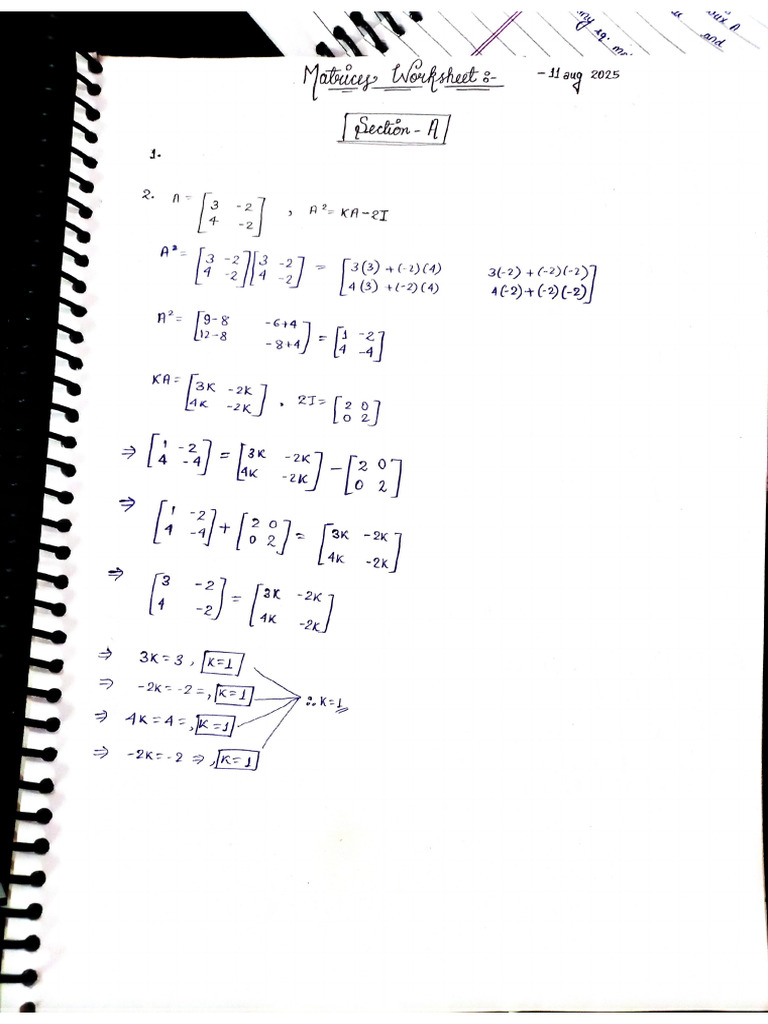 ny eq. m
ax A
and
Matrices Worksheet :- - 11 aug 2025
Section - A
1.
2. A = [3 -2; 4 -2] , A² = KA - 2I
A² = [3 -2; 4 -2][3 -2; 4 -2] = [3(3) + (-2)(4) 3(-2) + (-2)(-2); 4(3) + (-2)(4) 4(-2) + (-2)(-2)]
A² = [9-8 -6+4; 12-8 -8+4] = [1 -2; 4 -4]
KA = [3K -2K; 4K -2K] , 2I = [2 0; 0 2]
⇒ [1 -2; 4 -4] = [3K -2K; 4K -2K] - [2 0; 0 2]
⇒ [1 -2; 4 -4] + [2 0; 0 2] = [3K -2K; 4K -2K]
⇒ [3 -2; 4 -2] = [3K -2K; 4K -2K]
⇒ 3K = 3 , K=1
⇒ -2K = -2 = , K=1 ∴ K=1
⇒ 4K = 4 = , K=1
⇒ -2K = -2 ⇒ , K=1